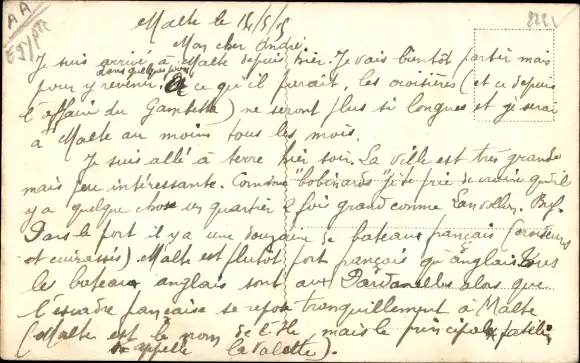 AA
Egypte
Malte le 14/5/15
Mon cher André.
Je suis arrivé à Malte depuis hier. Je vais bientôt partir mais
dans quelques jours
pour y revenir. A ce qu'il parait, les croisières (et ce depuis
l'affaire du Gambetta) ne seront plus si longues et je serai
à Malte au moins tous les mois.
Je suis allé à terre hier soir. La ville est très grande
mais peu intéressante. Comme "bobinards" je te prie de croire qu'il
y a quelque chose un quartier 2 fois grand comme Bref.
Dans le port il y a une douzaine de bateaux français (croiseurs
et cuirassés). Malte est plutôt port français qu'anglais. Tous
les bateaux anglais sont aux Dardanelles alors que
l'escadre française se repose tranquillement à Malte
(Malte est le nom de l'Ile mais le principal
s'appelle La Valette).